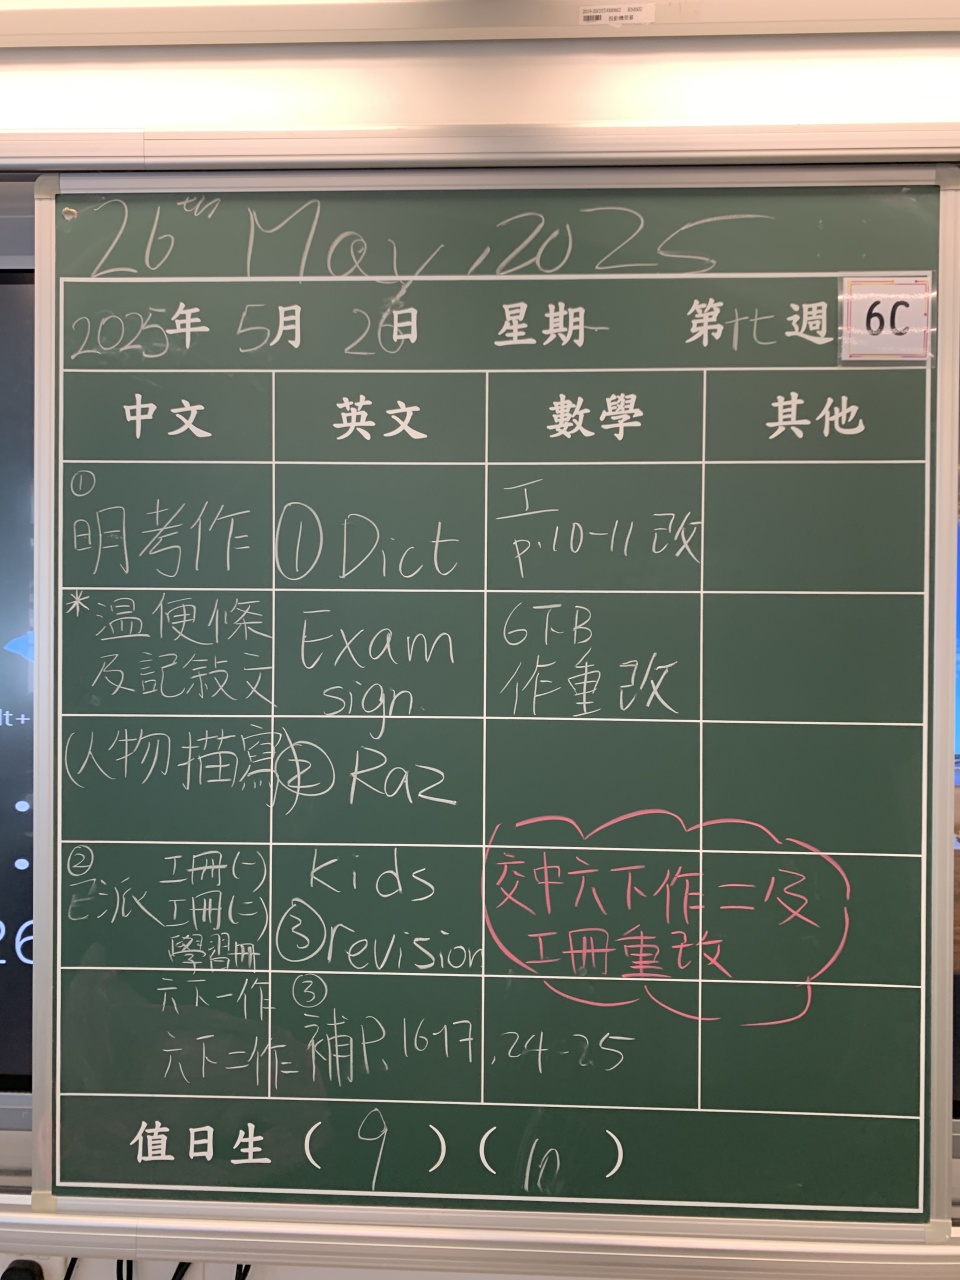 26th May, 2025
2025年 5月 26日 星期一 第廿七週 6C
中文 英文 數學 其他
①
明考作
*溫便條
及記敍文
(人物描寫)
②
已派 工冊(一)
工冊(二)
學習冊
六下一作
六下二作
① Dict
Exam
sign.
② Raz
Kids
③ revision
③
補P.16-17, 24-25
工
p.10-11 改
6下B
作重改
交中六下作二及
工冊重改
值日生 ( 9 ) ( 10 )